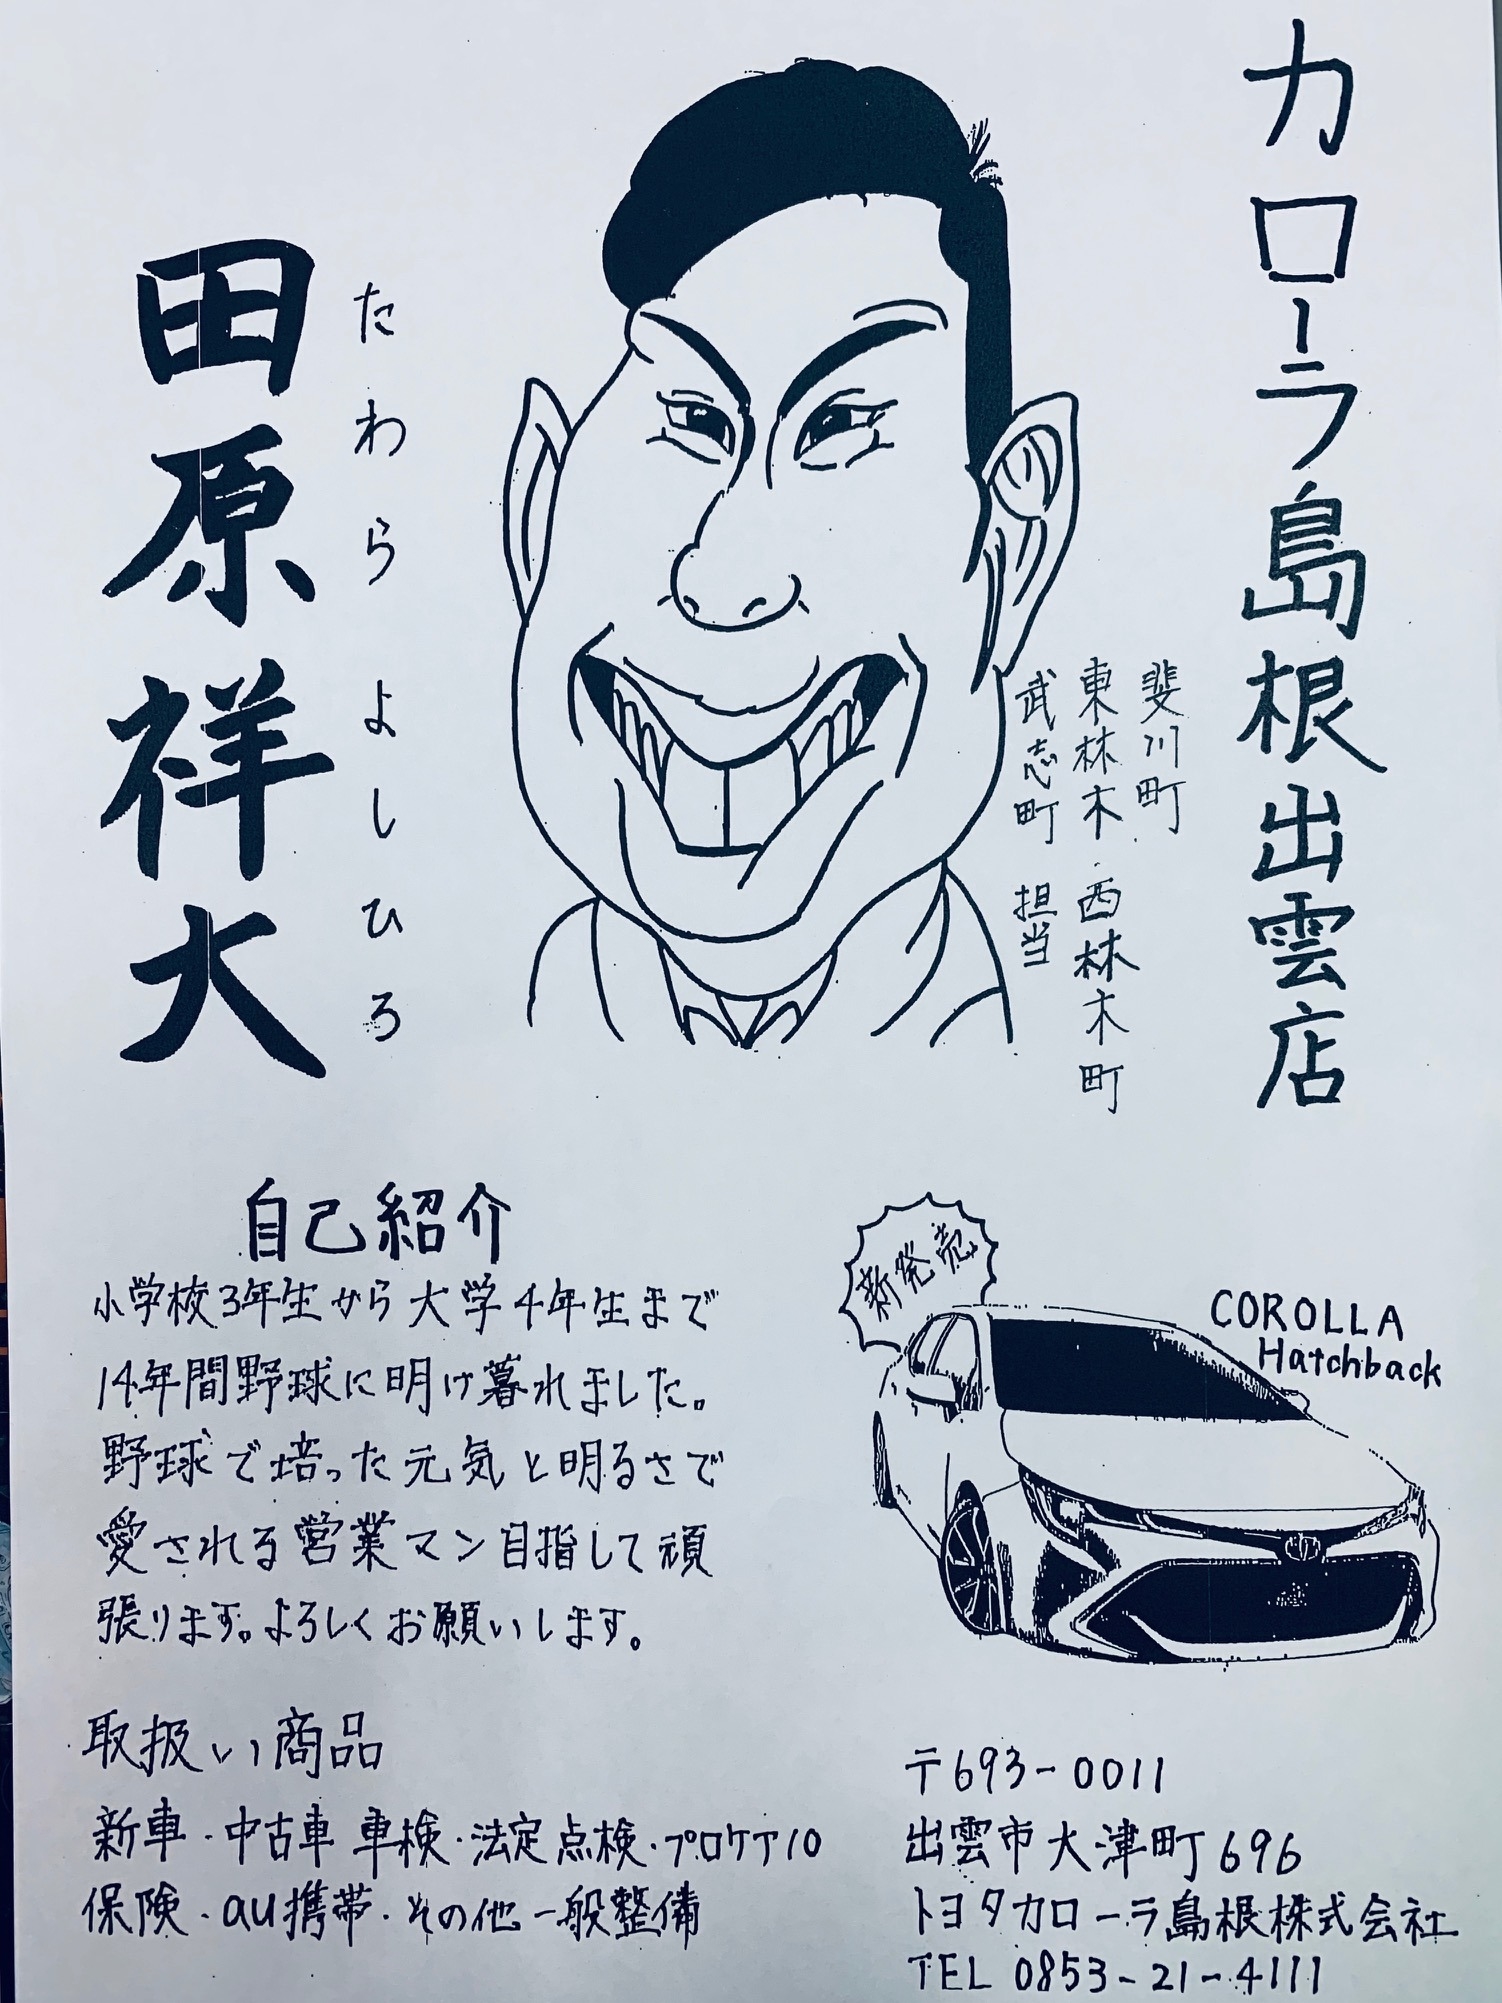 カローラ島根出雲店
斐川町
東林木・西林木町
武志町 担当
たわら よしひろ
田原祥大
自己紹介
小学校3年生から大学4年生まで
14年間野球に明け暮れました。
野球で培った元気と明るさで
愛される営業マン目指して頑
張ります。よろしくお願いします。
新発売
COROLLA
Hatchback
取扱い商品
新車・中古車 車検・法定点検・プロケア10
保険・au携帯・その他一般整備
〒693-0011
出雲市大津町696
トヨタカローラ島根株式会社
TEL 0853-21-4111